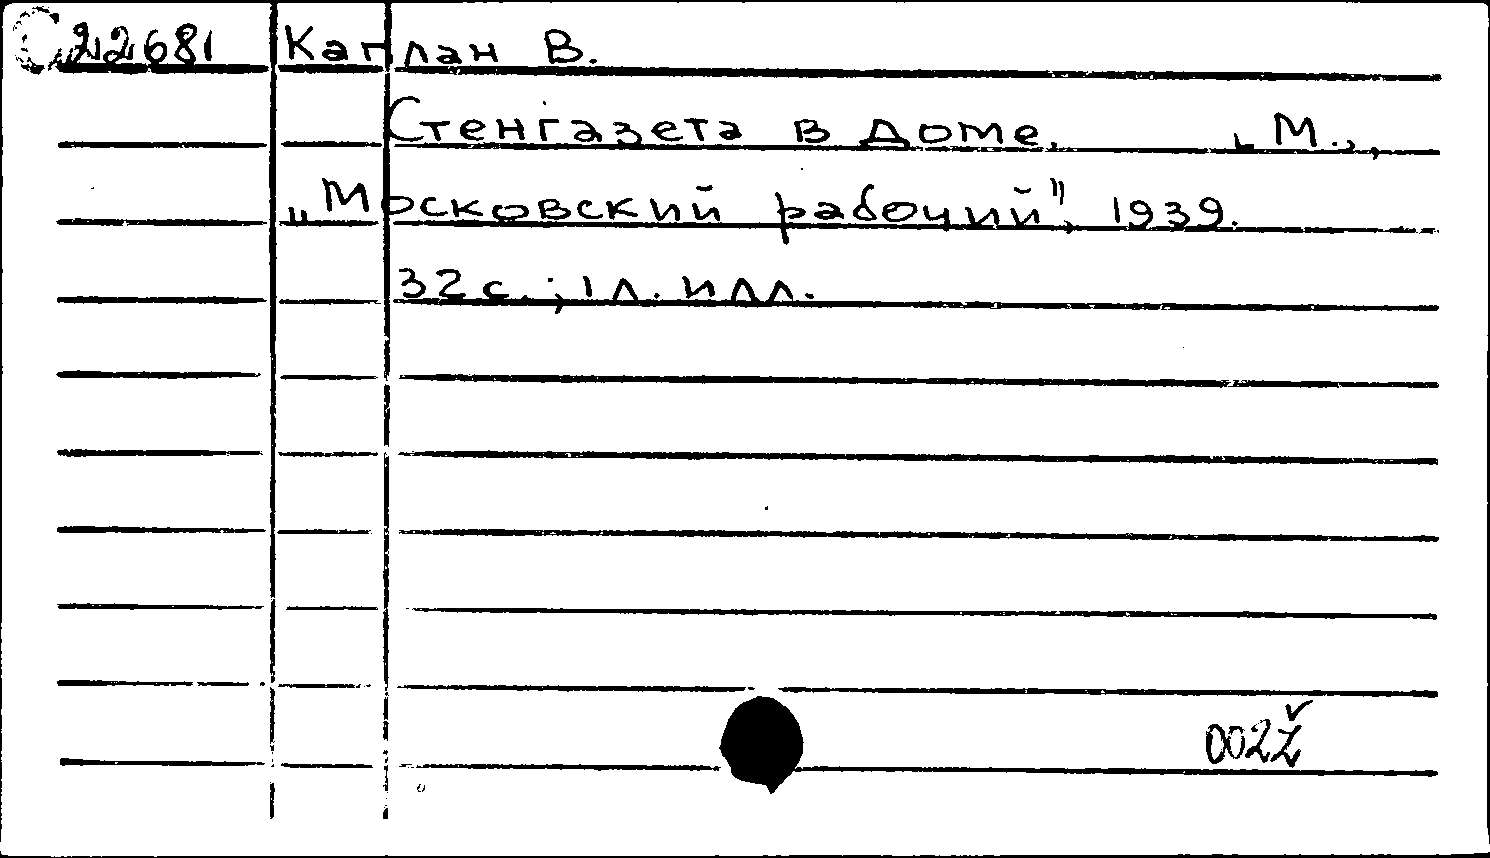 C22681 Каплан В.
Стенгазета в доме. М.,
„Московский рабочий", 1939.
32 с.; 1 л. илл.
002Ž